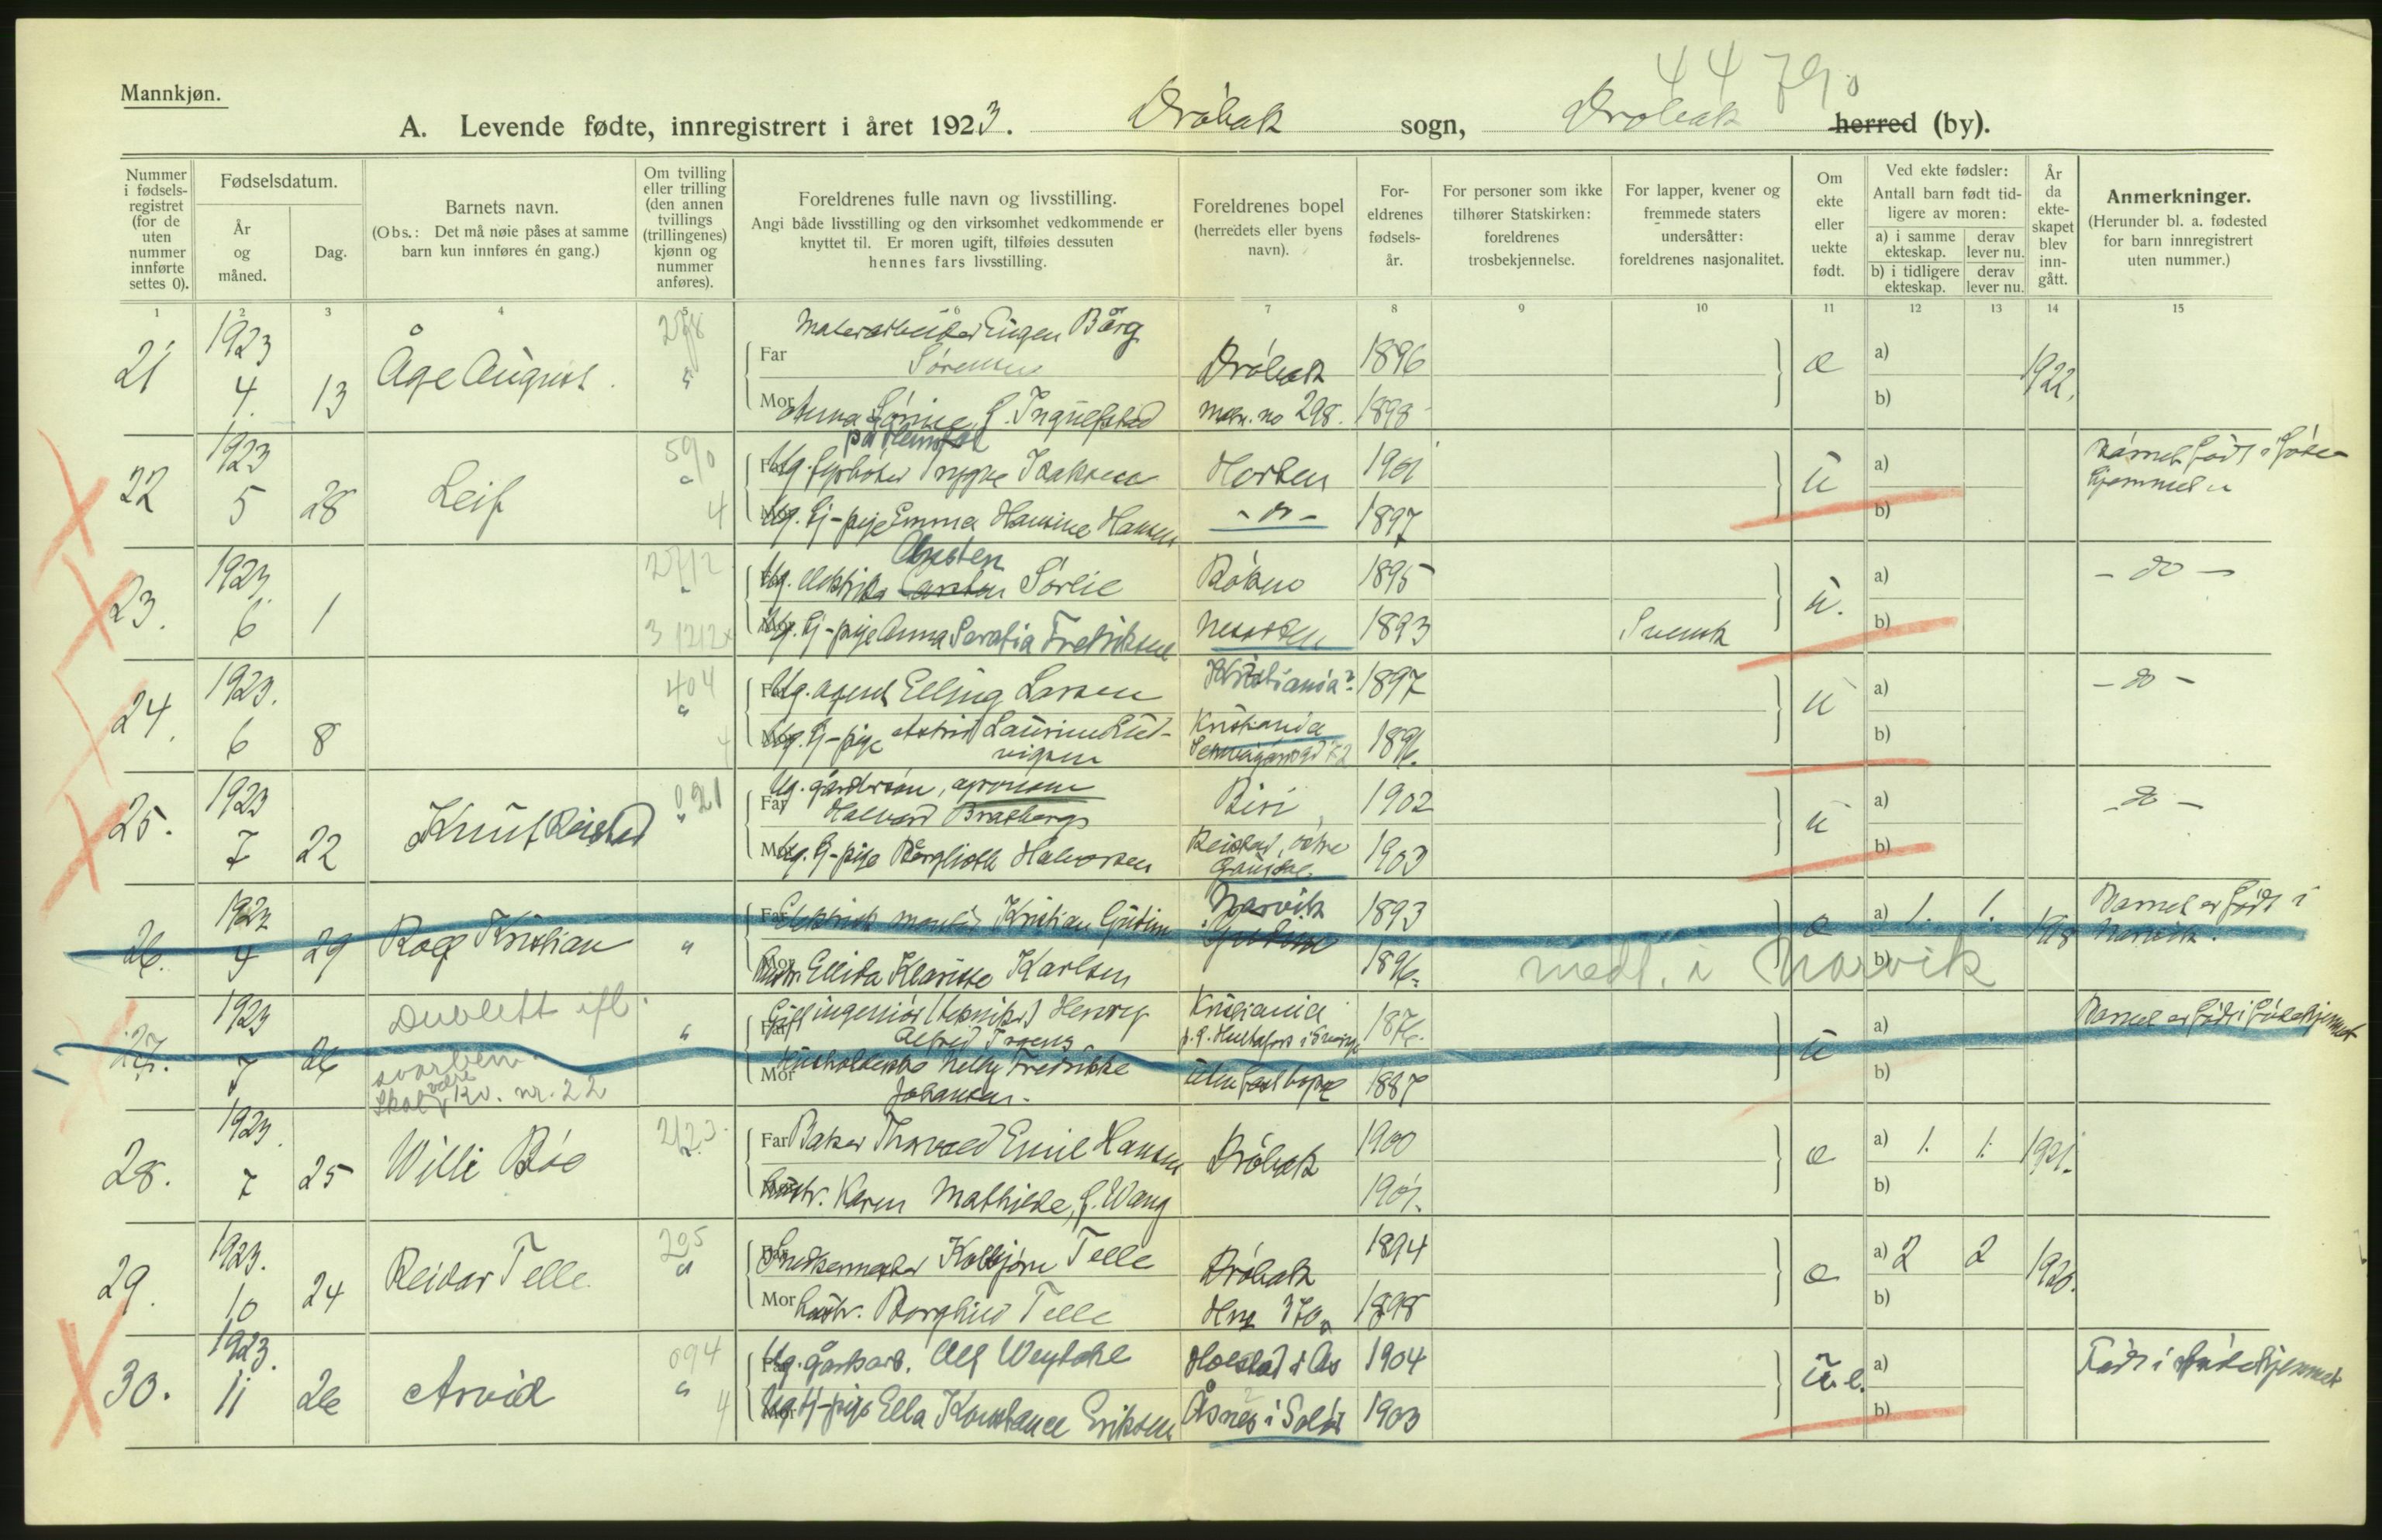 44 79.0
Mannkjøn.
A. Levende fødte, innregistrert i året 1923. Drøbak sogn, Drøbak herred (by).
Nummer i fødsels-registret (for de uten nummer innførte settes 0).
Fødselsdatum.
År og måned.
Dag.
Barnets navn.
(Obs.: Det må nøie påses at samme barn kun innføres én gang.)
Om tvilling eller trilling (den annen tvillings (trillingenes) kjønn og nummer anføres).
Foreldrenes fulle navn og livsstilling.
Angi både livsstilling og den virksomhet vedkommende er knyttet til. Er moren ugift, tilføies dessuten hennes fars livsstilling.
Foreldrenes bopel (herredets eller byens navn).
For-eldrenes fødsels-år.
For personer som ikke tilhører Statskirken: foreldrenes trosbekjennelse.
For lapper, kvener og fremmede staters undersåtter: foreldrenes nasjonalitet.
Om ekte eller uekte født.
Ved ekte fødsler:
Antall barn født tid-ligere av moren:
a) i samme ekteskap.
derav lever nu.
b) i tidligere ekteskap.
derav lever nu.
År da ekte-skapet blev inn-gått.
Anmerkninger.
(Herunder bl. a. fødested for barn innregistrert uten nummer.)
1 2 3 4 5 7 8 9 10 11 12 13 14 15
21 1923 4. 13 Åge August. 298 "
Far Malerarbeider Eugen Bårg Sørensen Drøbak 1896 e a) b) 1922.
Mor Anna f. Ingulfstad matr. no 298. 1898
22 1923 5 28 Leif 590 " 4
Far Ug. fyrbøter Trygve Isaksen Horten 1901 ü a) b) Barnet født i føde-hjemmet
Mor Ug. tj-pige Emma Hansine Hansen - " - 1897
23. 1923. 6 1 2712 " 3 1212x
Far Ug. elektriker Carsten Sørlie Røken 1895 ü. a) b) - do -
Mor Ug. tj-pige Anna Serafia Fredriksen Nesodden 1893 Svensk
24. 1923. 6 8 404 " 4
Far Ug. agent Elling Larsen Kristiania? 1897 ü a) b) - do -
Mor Ug. tj-pige Astrid Laurine Lud-vigsen Kristiania 1896.
25. 1923 7 22 Knut Reistad 021 "
Far Ug. gårdsrsøn, agronom Halvard Braaberg Biri 1902 ü a) b) - do -
Mor Ug. tj-pige Borgliott Halvorsen Reistad, østre Gausdal. 1903
26. 1923 4 29 Rolf Kristian "
Far Elektrisk montør Kristian Narvik 1893 e a) 1. 1. b) 1918 Barnet er født i Narvik.
Mor hustr. Ellida Klarisse Karlsen 1896. medt. i Narvik
27. 1923 7 26 Dublett ifl. svarbrev Skal være Kv. nr. 22 "
Far Gift ingeniør Henry Alfred Kristiania p. t. Hultafors i Sverige 1876. ü a) b) Barnet er født i fødehjemmet
Mor Husholderske Nelly Fredrikke Johansen. uten fast bopæl 1887
28. 1923. 7 25 Willi Bøe 2123. "
Far Baker Thorvald Emil Hansen Drøbak 1900 e a) 1. 1. b) 1921.
Mor hustr. Karen Mathilde, f. Wang 1901.
29. 1923. 10 24 Reidar Telle 295 "
Far Snekkermester Kolbjørn Telle Drøbak 1894 e a) 2 2 b) 1920.
Mor hustr. Borghild Telle Hus 370a 1898
30. 1923. 11 26 Arvid 094 " 4
Far Ug. gårdsarb. Alf Weydahl Holstad i Ås 1904 ü. e. a) b) Født i fødehjemmet
Mor Ug. tj-pige Ella Konstance Eriksen Åsnes i Solør 1903